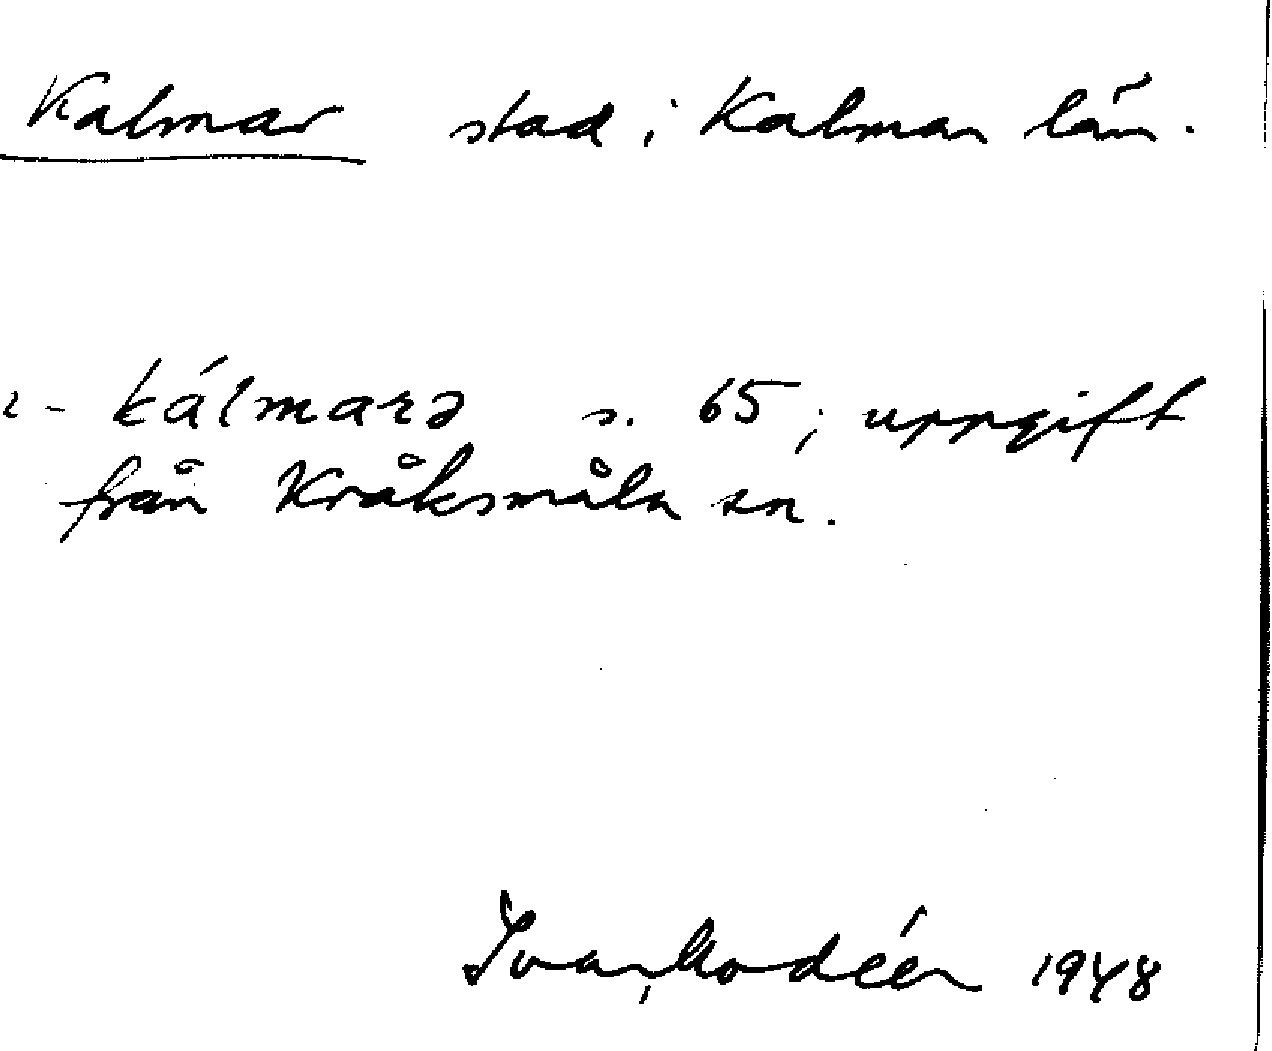 Kalmar stad i Kalmar län.
- kálmarə s. 65; uppgift
från Kråksmåla sn.
Ivar Modéer 1948